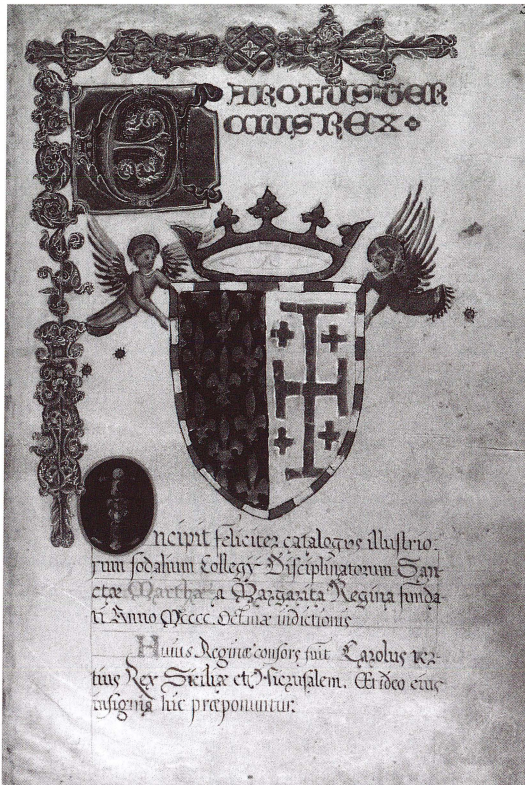 CAROLUS TER
CIUS REX
Incipit feliciter catalogus illustrio-
rum sodalium Collegy Disciplinatorum San-
ctæ Marthæ a Margarita Regina funda-
ti Anno Mcccc. Octauæ indictionis
Huius Reginæ consors fuit Carolus ter-
tius Rex Siciliæ et Hierusalem. Et ideo eius
insignia hic præponuntur.